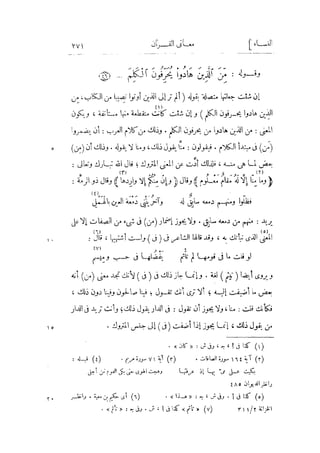 النساء ] معانى القرآن ٢٧١
وقوله : مِّنَ الَّذِينَ هَادُوا يُحَرِّفُونَ الْكَلِمَ ...
إن شئت جعلتها متصلة بقوله ( ألم تر إلى الذين أوتوا نصيبا من الكتاب ، من
الذين هادوا يحرفون الكلم ) و إن شئت كانت منقطعة منها مستأنفة ، ويكون
المعنى : من الذين هادوا من يحرفون الكلم . وذلك من كلام العرب : أن يضمروا
( مَن ) فى مبتدأ الكلام . فيقولون : منّا يقول ذلك ، ومنا لا يقوله . وذلك أن ( مِن ) ٥
بعض لما هى منه ، فلذلك أدّت عن المعنى المتروك ؛ قال الله تبارك وتعالى :
( وما مِنا إلا له مقام معلوم ) (٢) وقال ( وإن مِنكم إلا واردها ) (٣) وقال ذو الرمة :
فظلوا ومنهم دمعه سابق له وآخر يثنى دمعة العين بالهمل (٤)
يريد : منهم من دمعه سابق . ولا يجوز إضمار ( مَن ) فى شىء من الصفات إلا على
المعنى الذى نبأتك به ، وقد قالها الشاعر فى ( فى ) ولست أشتهيها ، قال : ١٠
لو قلت ما فى قومها لم تأثم يفضلها فى حسب وميسم
ويروى أيضا ( تيثم ) لغة . وإنما جاز ذلك فى ( فى ) لأنك تجد معنى ( من ) أنه
بعض ما أضيفت إليه ؛ ألا ترى أنك تقول : فينا صالحون وفينا دون ذلك ،
فكأنك قلت : منا ، ولا يجوز أن تقول : فى الدار يقول ذلك ؛ وأنت تريد فى الدار
من يقول ذلك ، إنما يجوز إذا أضفت ( فى ) إلى جنس المتروك . ١٥
(٢) آية ١٦٤ سورة الصافات . (٣) آية ٧١ سورة مريم . (٤) قبله :
وانظر الديوان ٤٨٥
(٦) أى حكيم بن معية . وانظر ٢٠
الخزانة ٣١١/٢